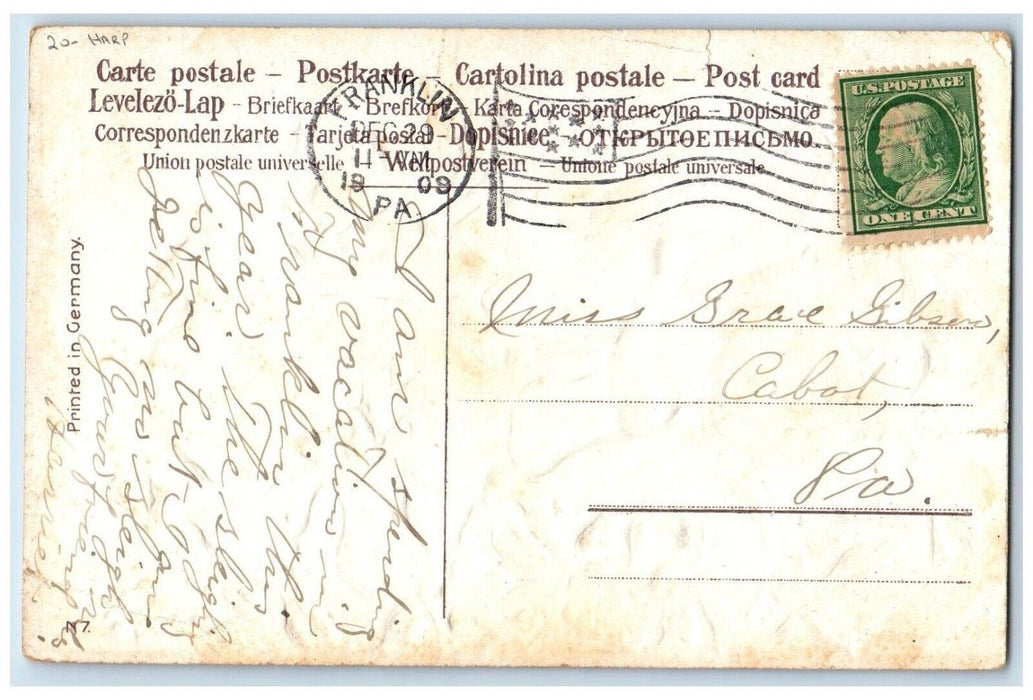 20- HARP
Carte postale – Postkarte – Cartolina postale – Post card
Levelező-Lap - Briefkaart - Brefkort - Karta Corespondencyjna - Dopisnica
Correspondenzkarte - Tarjeta postal - Dopisnice - ОТКРЫТОЕ ПИСЬМО.
Union postale universelle - Weltpostverein - Unione postale universale.
FRANKLIN
DEC 29
11- AM
19 09
PA.
U.S. POSTAGE
ONE CENT
I am spending
my vacation in
Franklin this
year. The sleigh
is fine but
getting no sleigh
Your friend
Printed in Germany.
Miss Grace Gibson,
Cabot,
Pa.